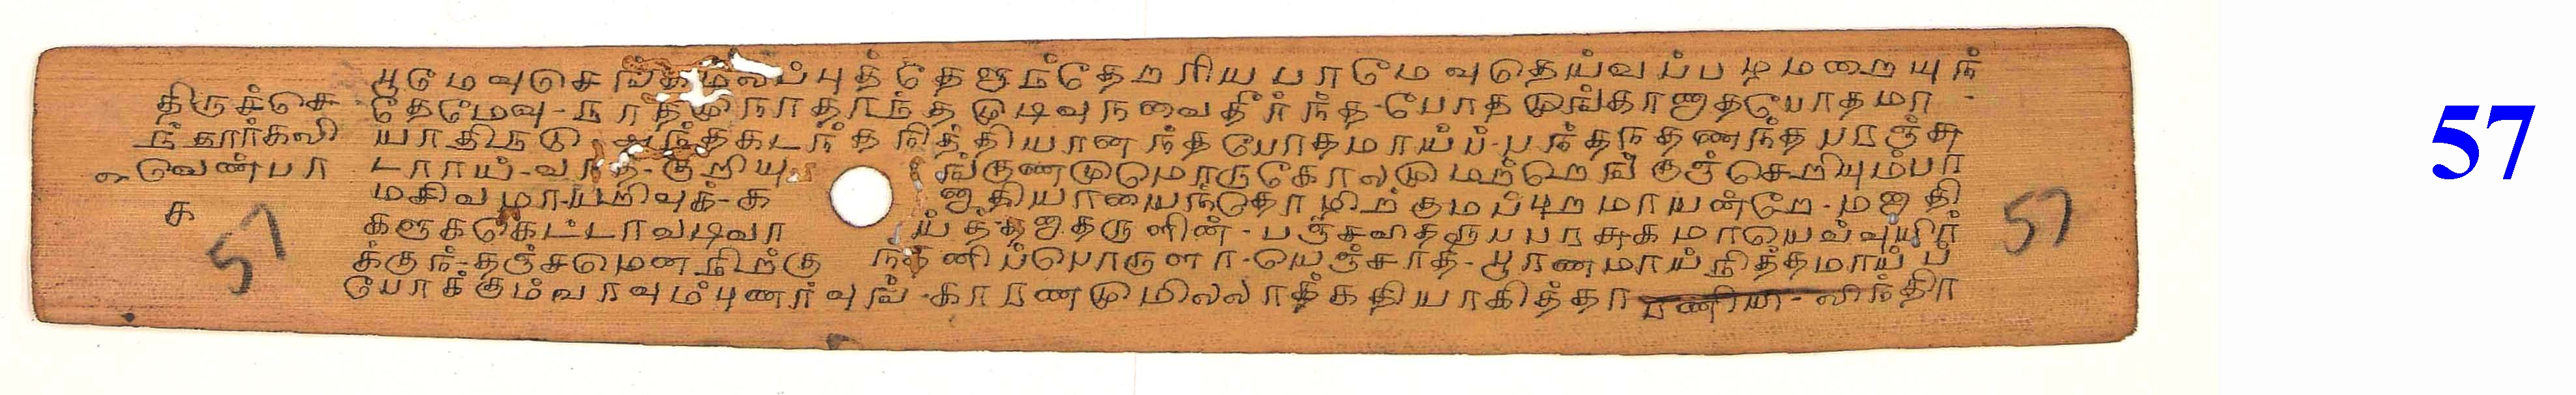 திருச்செ
ந்தூர்கலி
வெண்பா
௬
பூமேவுசெங்கமலப்புத்தேளுந்தேறரிய பாமேவுதெய்வப்பழமறையுந்
தேமேவு-நாதமுநாதாந்த முடிவுநவைதீர்ந்த-போதமுங்காணாதபோதமா
யாதிநடு அந்தகடந்த நித்தியானந்தபோதமாய்ப்-பந்தநதணந்த பரஞ்சு
டராய்-வாத-குறியு ங்குணமுமொருகோலமுமற்றெங்குஞ்செறியும்பர
மசிவமாயறிவுக்-க னாதியாயைந்தொழிற்குமப்புறமாயன்றே-மனாதி
களுக்கெட்டாவடிவா ய்த்-தனாதருளின்-பஞ்சவிதரூபபரசுகமாயெவ்வுயிர்
க்குந்-தஞ்சமெனநிற்கு ந்தனிப்பொருளா-யெஞ்சாத-பூரணமாய்நித்தமாய்ப்
போக்கும்வரவும்புணர்வுங்-காரணமுமில்லாக்கதியாகித்தாரணியி-லிந்திர
57
57
57